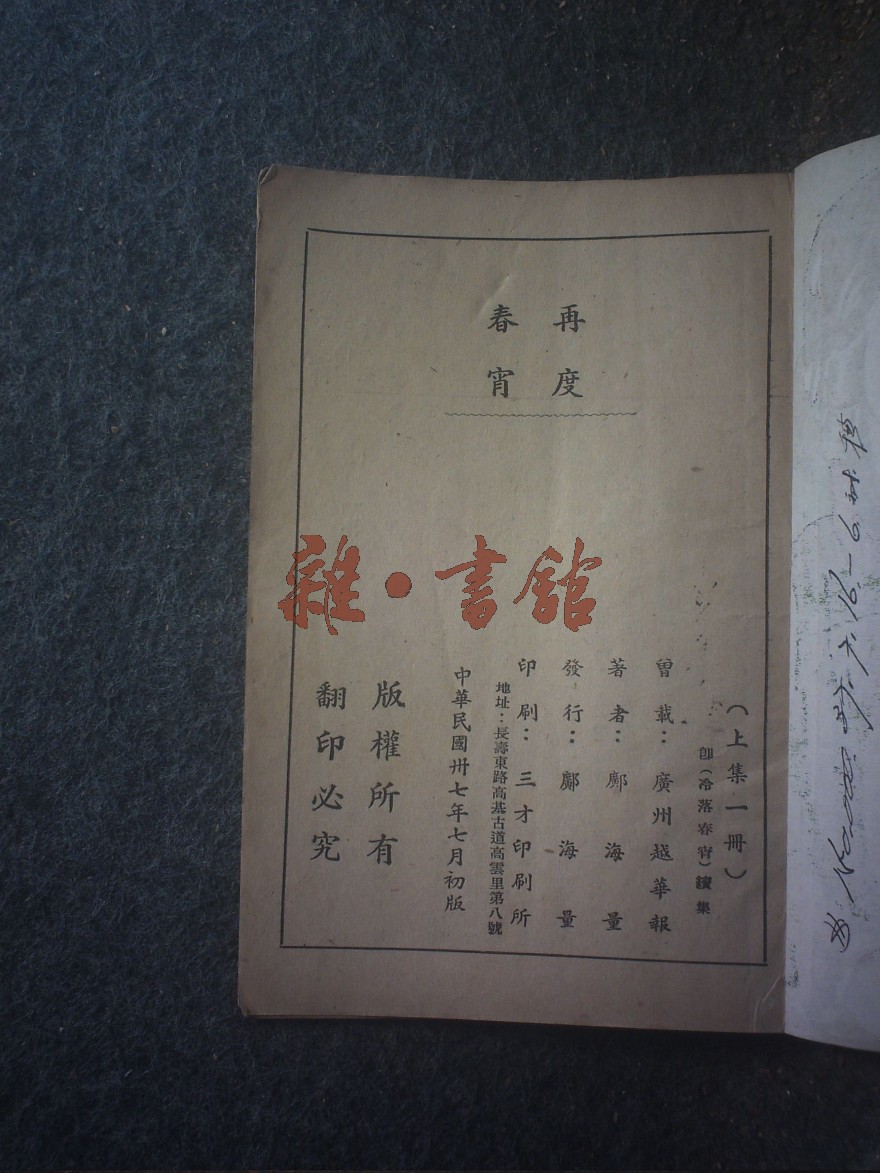 再度
春宵
（上集一冊）
卽（冷落春宵）續集
曾載：廣州越華報
著者：鄺海量
發行：鄺海量
印刷：三才印刷所
地址：長壽東路高基古道高雲里第八號
中華民國卅七年七月初版
版權所有
翻印必究
雜·書館